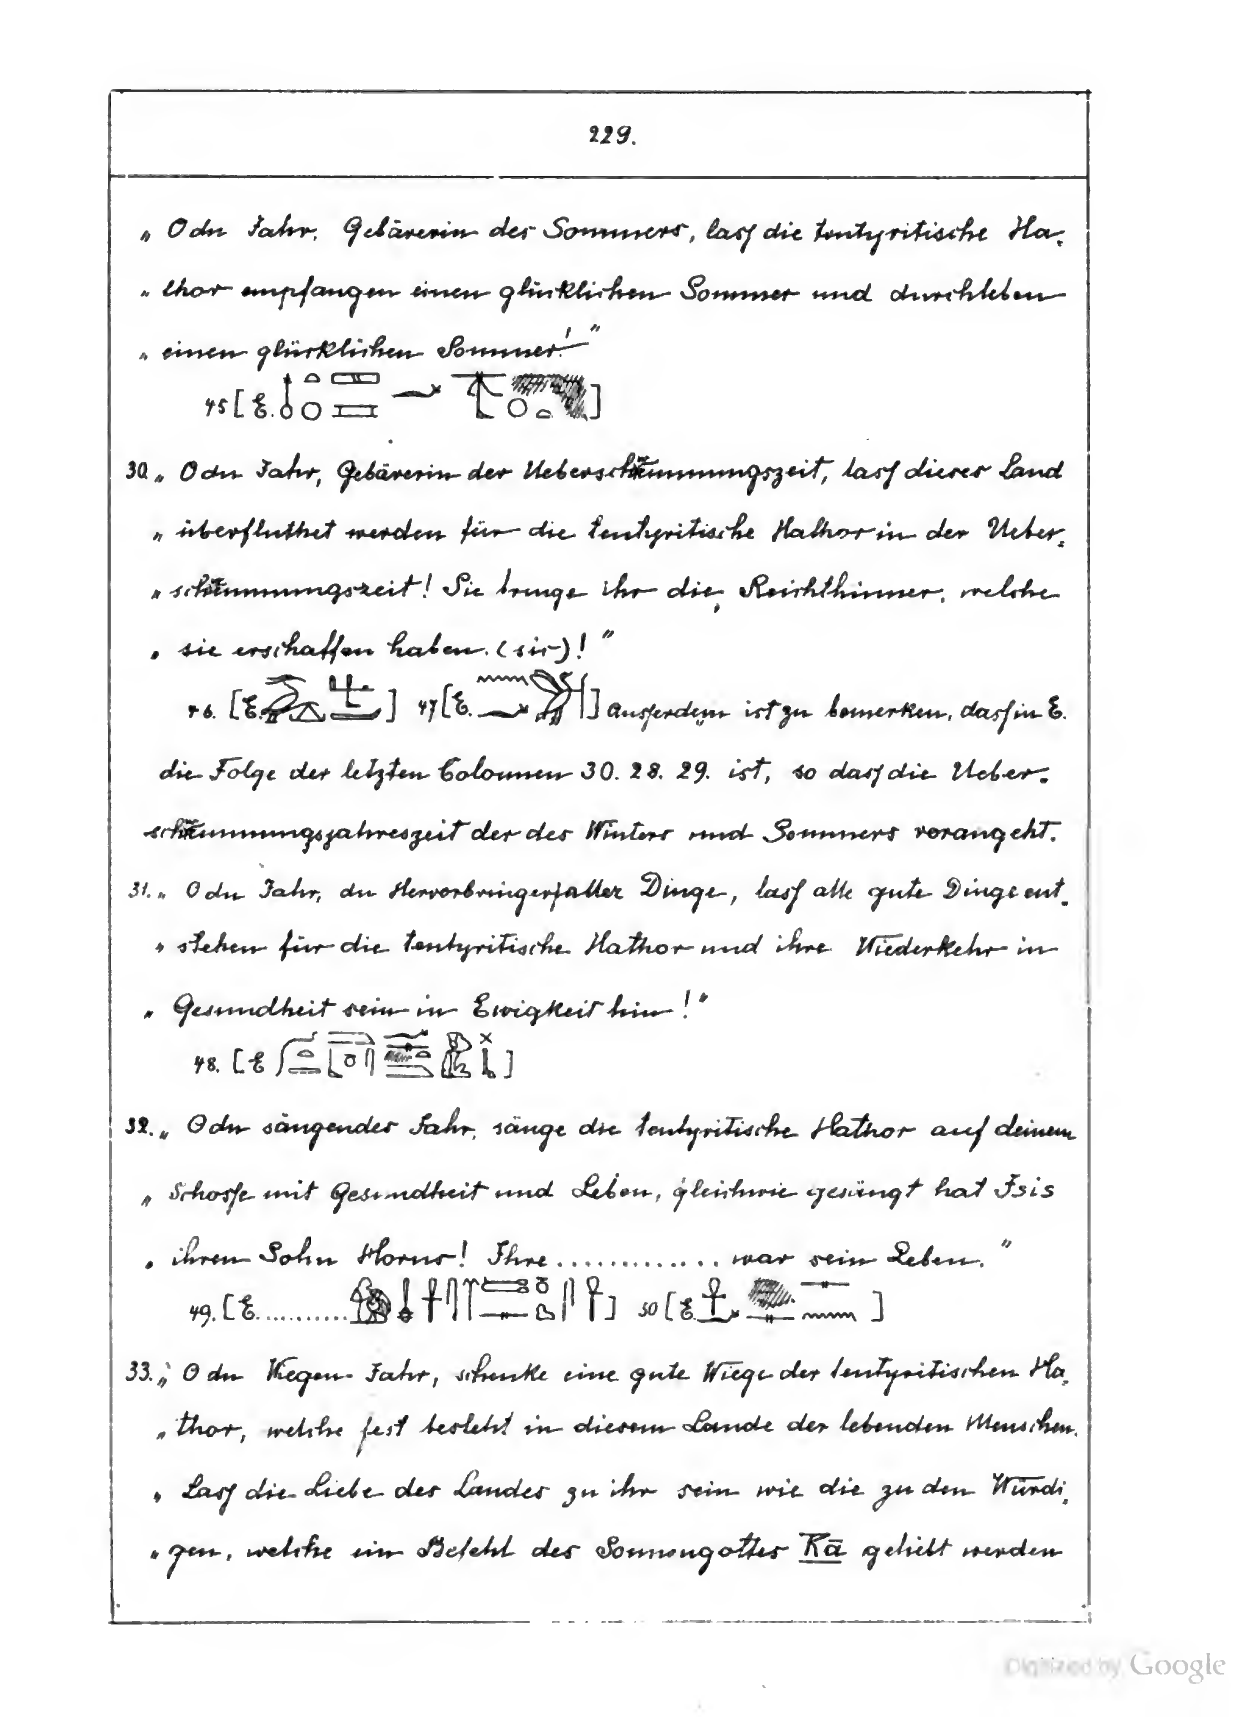 229.
„ O du Jahr, Gebärerin des Sommers, lass die tentyritische Ha-
„ thor empfangen einen glücklichen Sommer und durchleben
„ einen glücklichen Sommer!"
45 [E. ]
30. „ O du Jahr, Gebärerin der Ueberschwemmungszeit, lass dieses Land
„ überfluthet werden für die tentyritische Hathor in der Ueber-
„ schwemmungszeit! Sie bringe ihr die Reichthümer, welche
„ sie erschaffen haben. (sic)!"
46. [E. ] 47 [E. ] Ausserdem ist zu bemerken, dass in E.
die Folge der letzten Colonnen 30. 28. 29. ist, so dass die Ueber-
schwemmungsjahreszeit der des Winters und Sommers vorangeht.
31. „ O du Jahr, du Hervorbringer aller Dinge, lass alle gute Dinge ent-
„ stehen für die tentyritische Hathor und ihre Wiederkehr in
„ Gesundheit sein in Ewigkeit hin!"
48. [E ]
32. „ O du säugendes Jahr, säuge die tentyritische Hathor auf deinem
„ Schosse mit Gesundheit und Leben, gleichwie gesäugt hat Isis
„ ihren Sohn Horus! Ihre ............. war sein Leben."
49. [E. .......... ] 50 [E. ]
33. „ O du Wiegen-Jahr, schenke eine gute Wiege der tentyritischen Ha-
„ thor, welche fest besteht in diesem Lande der lebenden Menschen.
„ Lass die Liebe des Landes zu ihr sein wie die zu den Würdi-
„ gen, welche ein Befehl des Sonnengottes Rā geliebt werden
Digitized by Google